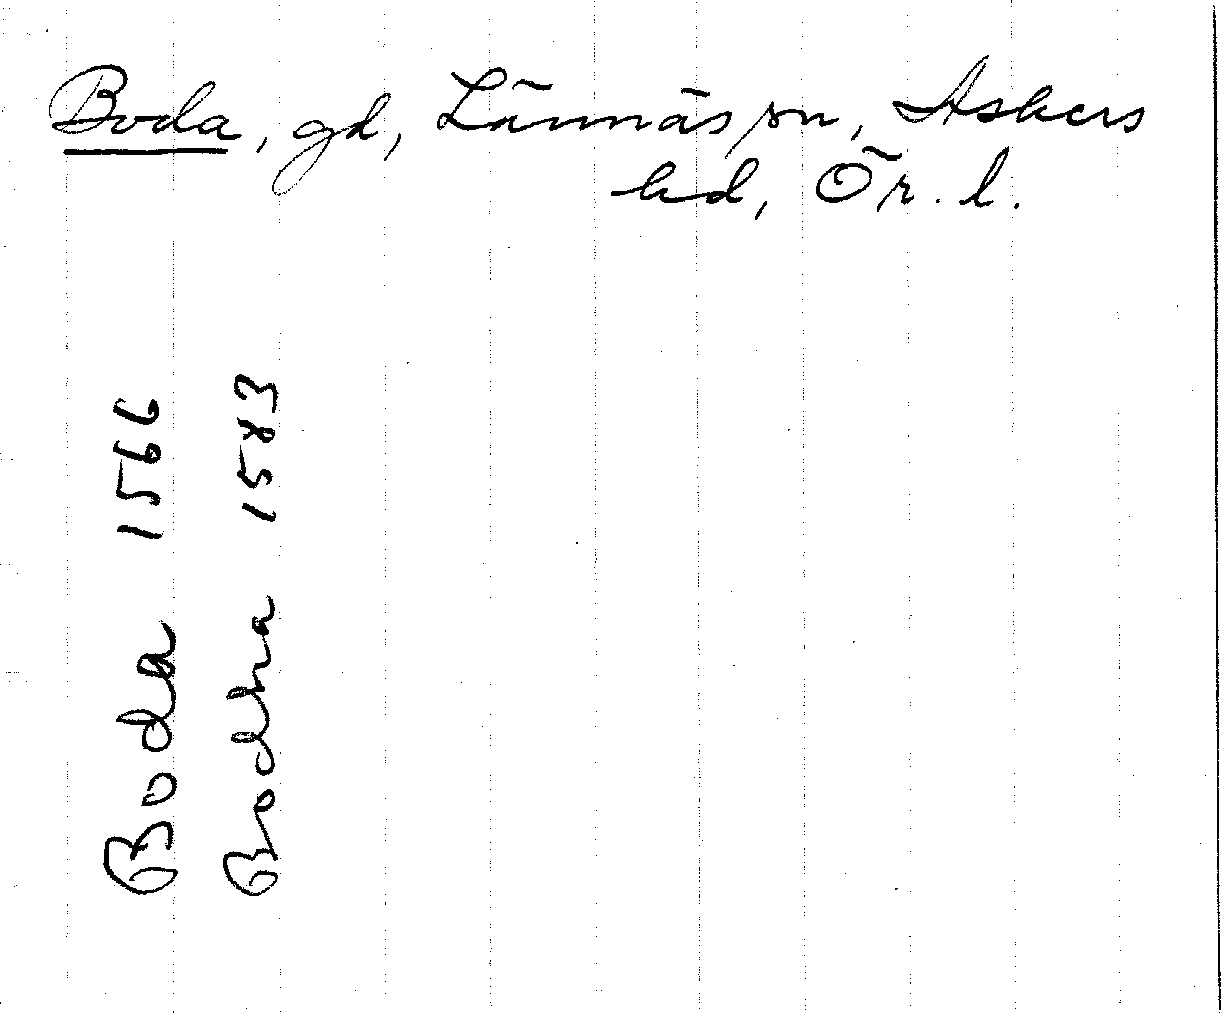 Boda, gd, Lännäs sn, Askers
hd, Ör. l.
Boda 1566
Bodha 1583